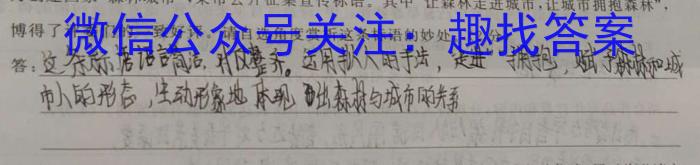 某市公开征集宣传标语。其中“让森林走进城市,让城市拥抱森林”,
博得了
微信公众号关注：趣找答案
答：这条标语语言简洁,对仗整齐。运用拟人的手法,“走进”“拥抱”,赋予森林和城
市人的形态,生动形象地体现出森林与城市的关系